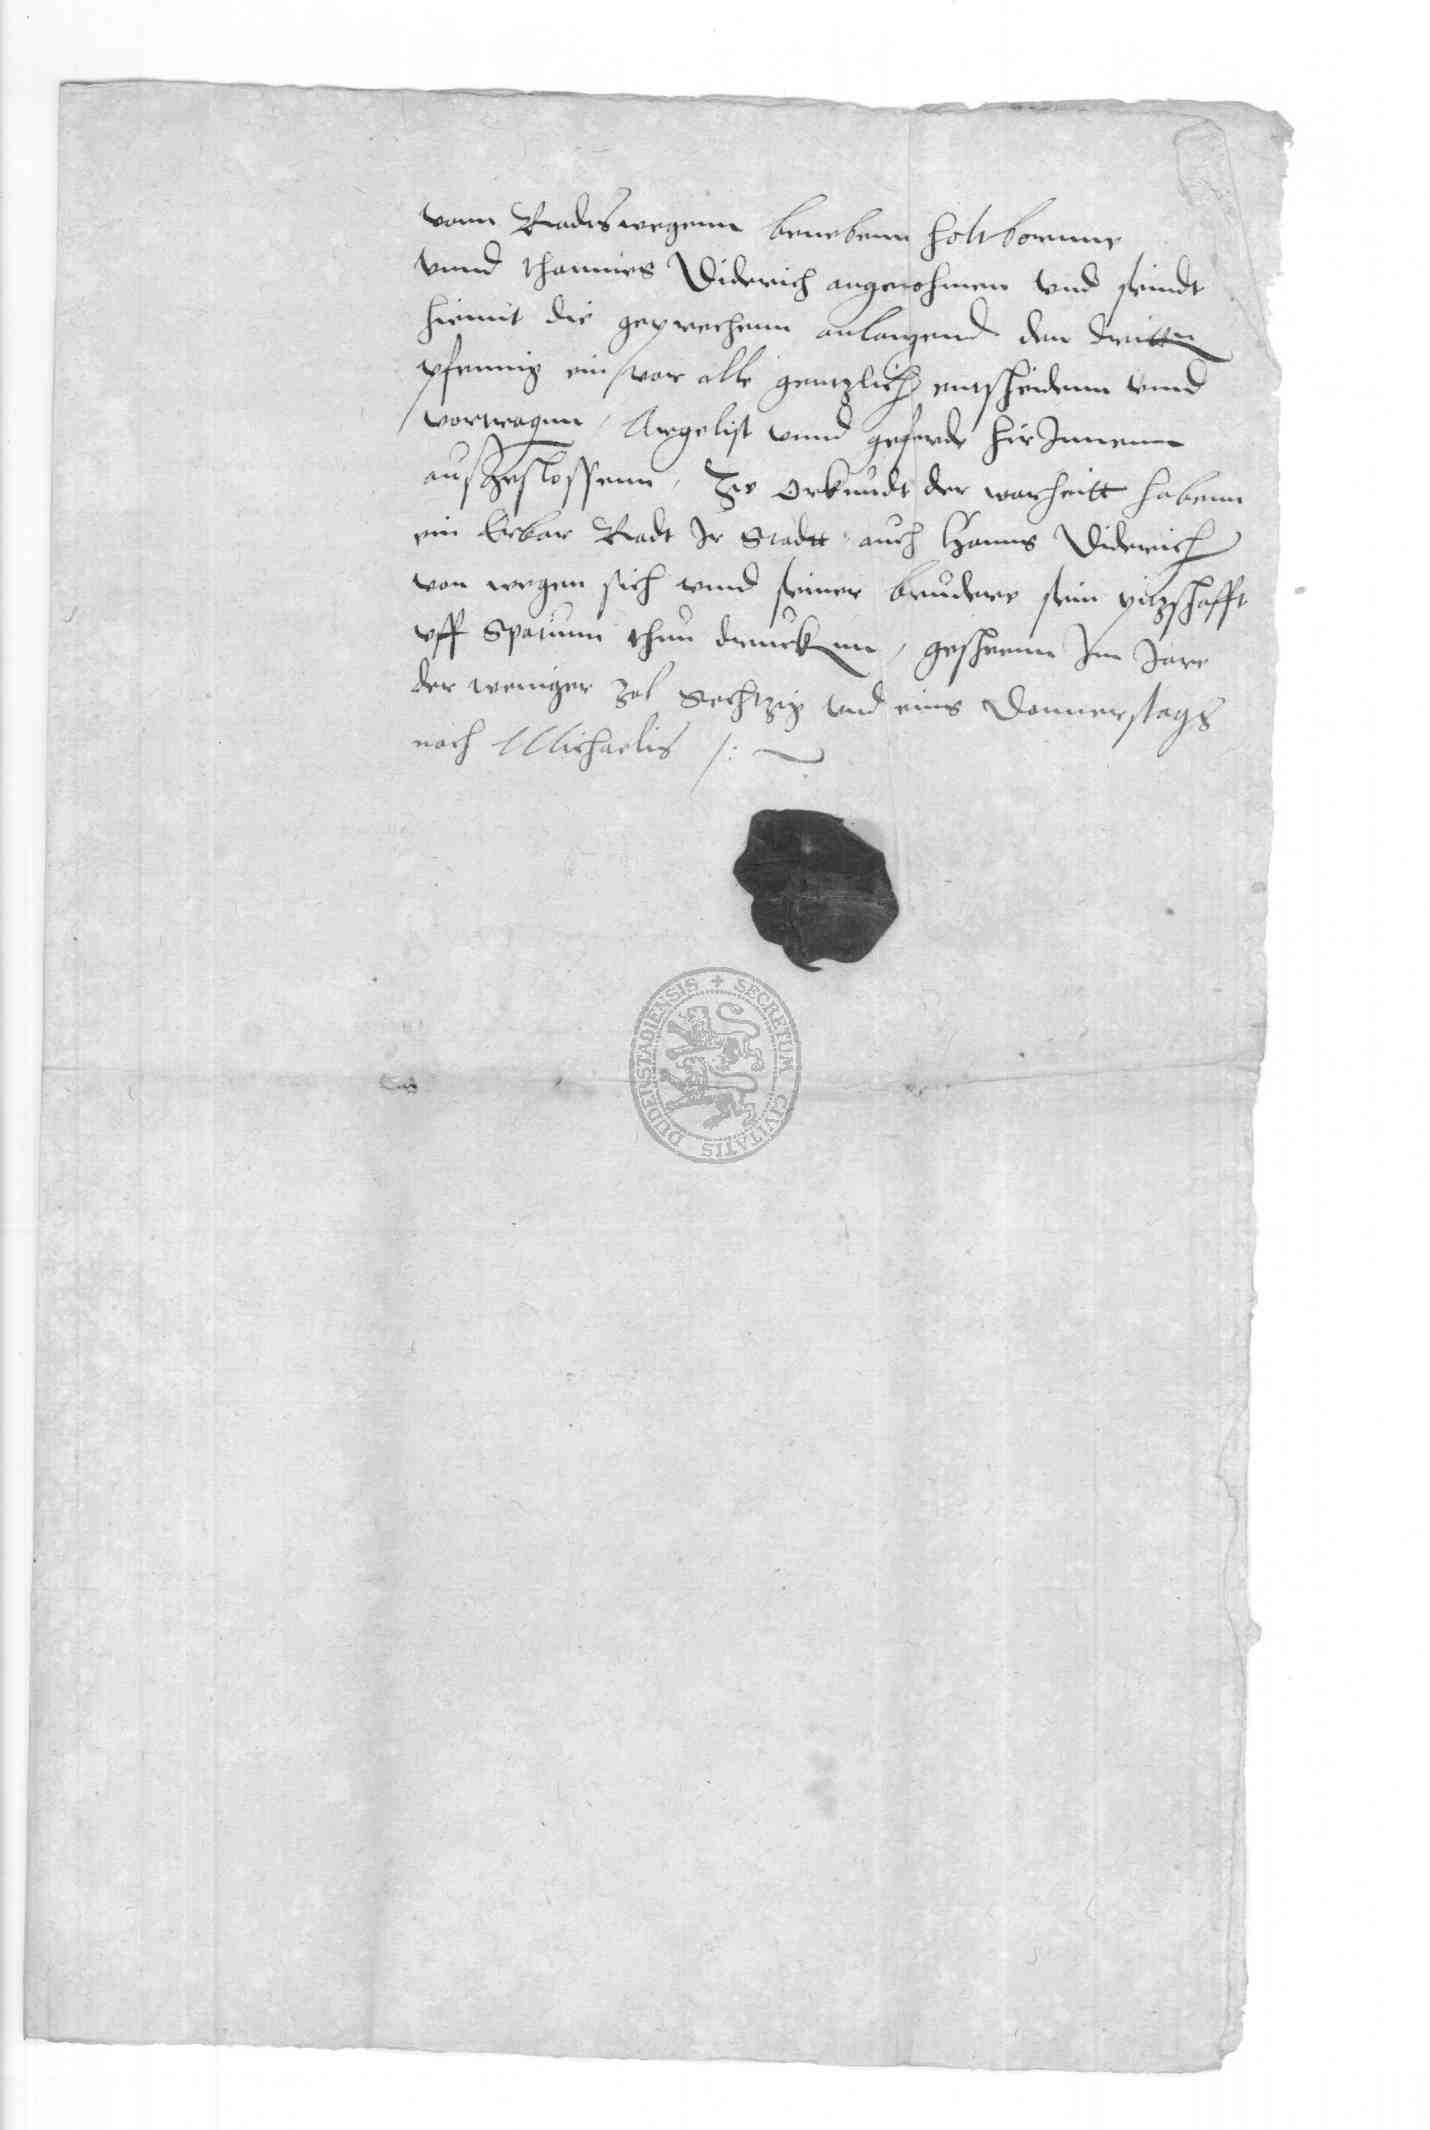 vonn Radtswegenn benebenn Holtbornne
vnnd Hannies Diderich angenohmen vnd seindt
hiemit die geprechenn anlangend den dritten
pfennig ein vor alle gentzlich entscheidenn vnnd
vortragenn / Argelist vnnd geferde hir Innenn
außgeslossenn / Zw Orkundt der warheitt habenn
ein Erbar Radt Ir Stadtt auch Hanns Diderich
von wegen sich vnnd seiner bruder sein pitzschafft
vff Spatium thun druckenn / gescheenn Im Jare
der weniger zal Sechtzig vnd eins Donnerstags
nach Michaelis /:
SECRETUM CIVITATIS DUDERSTADIENSIS